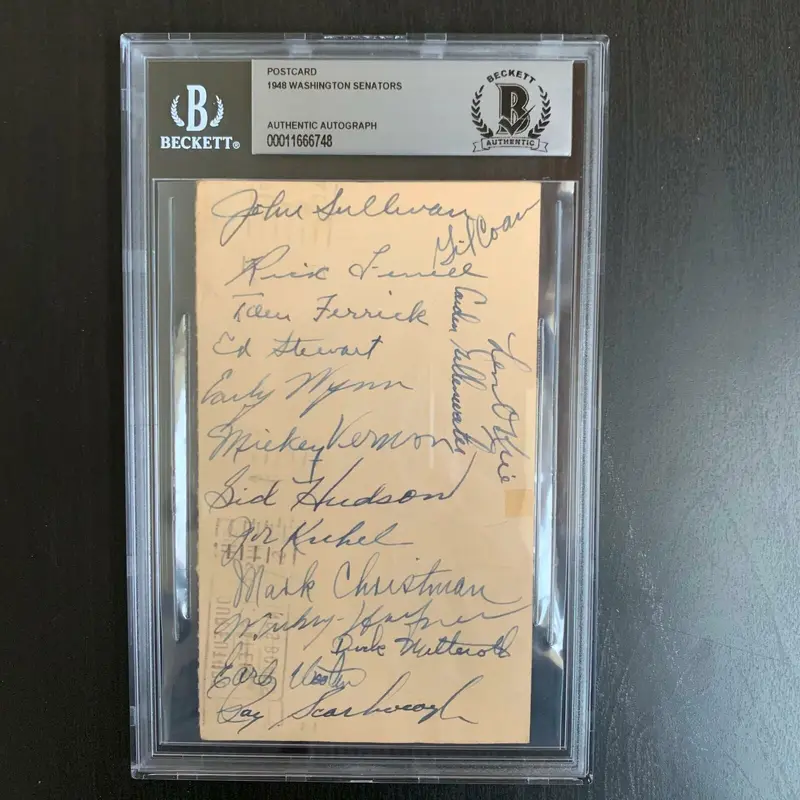 B
BECKETT®
POSTCARD
1948 WASHINGTON SENATORS
AUTHENTIC AUTOGRAPH
00011666748
BECKETT
B
AUTHENTIC
John Sullivan
Gil Coan
Rick Ferrell
Tom Ferrick
Ed Stewart
Early Wynn
Mickey Vernon
Carden Gillenwater
Len Okrie
Sid Hudson
Joe Kuhel
Mark Christman
Mickey Haefner
Dick Welteroth
Earl Wooten
Ray Scarborough